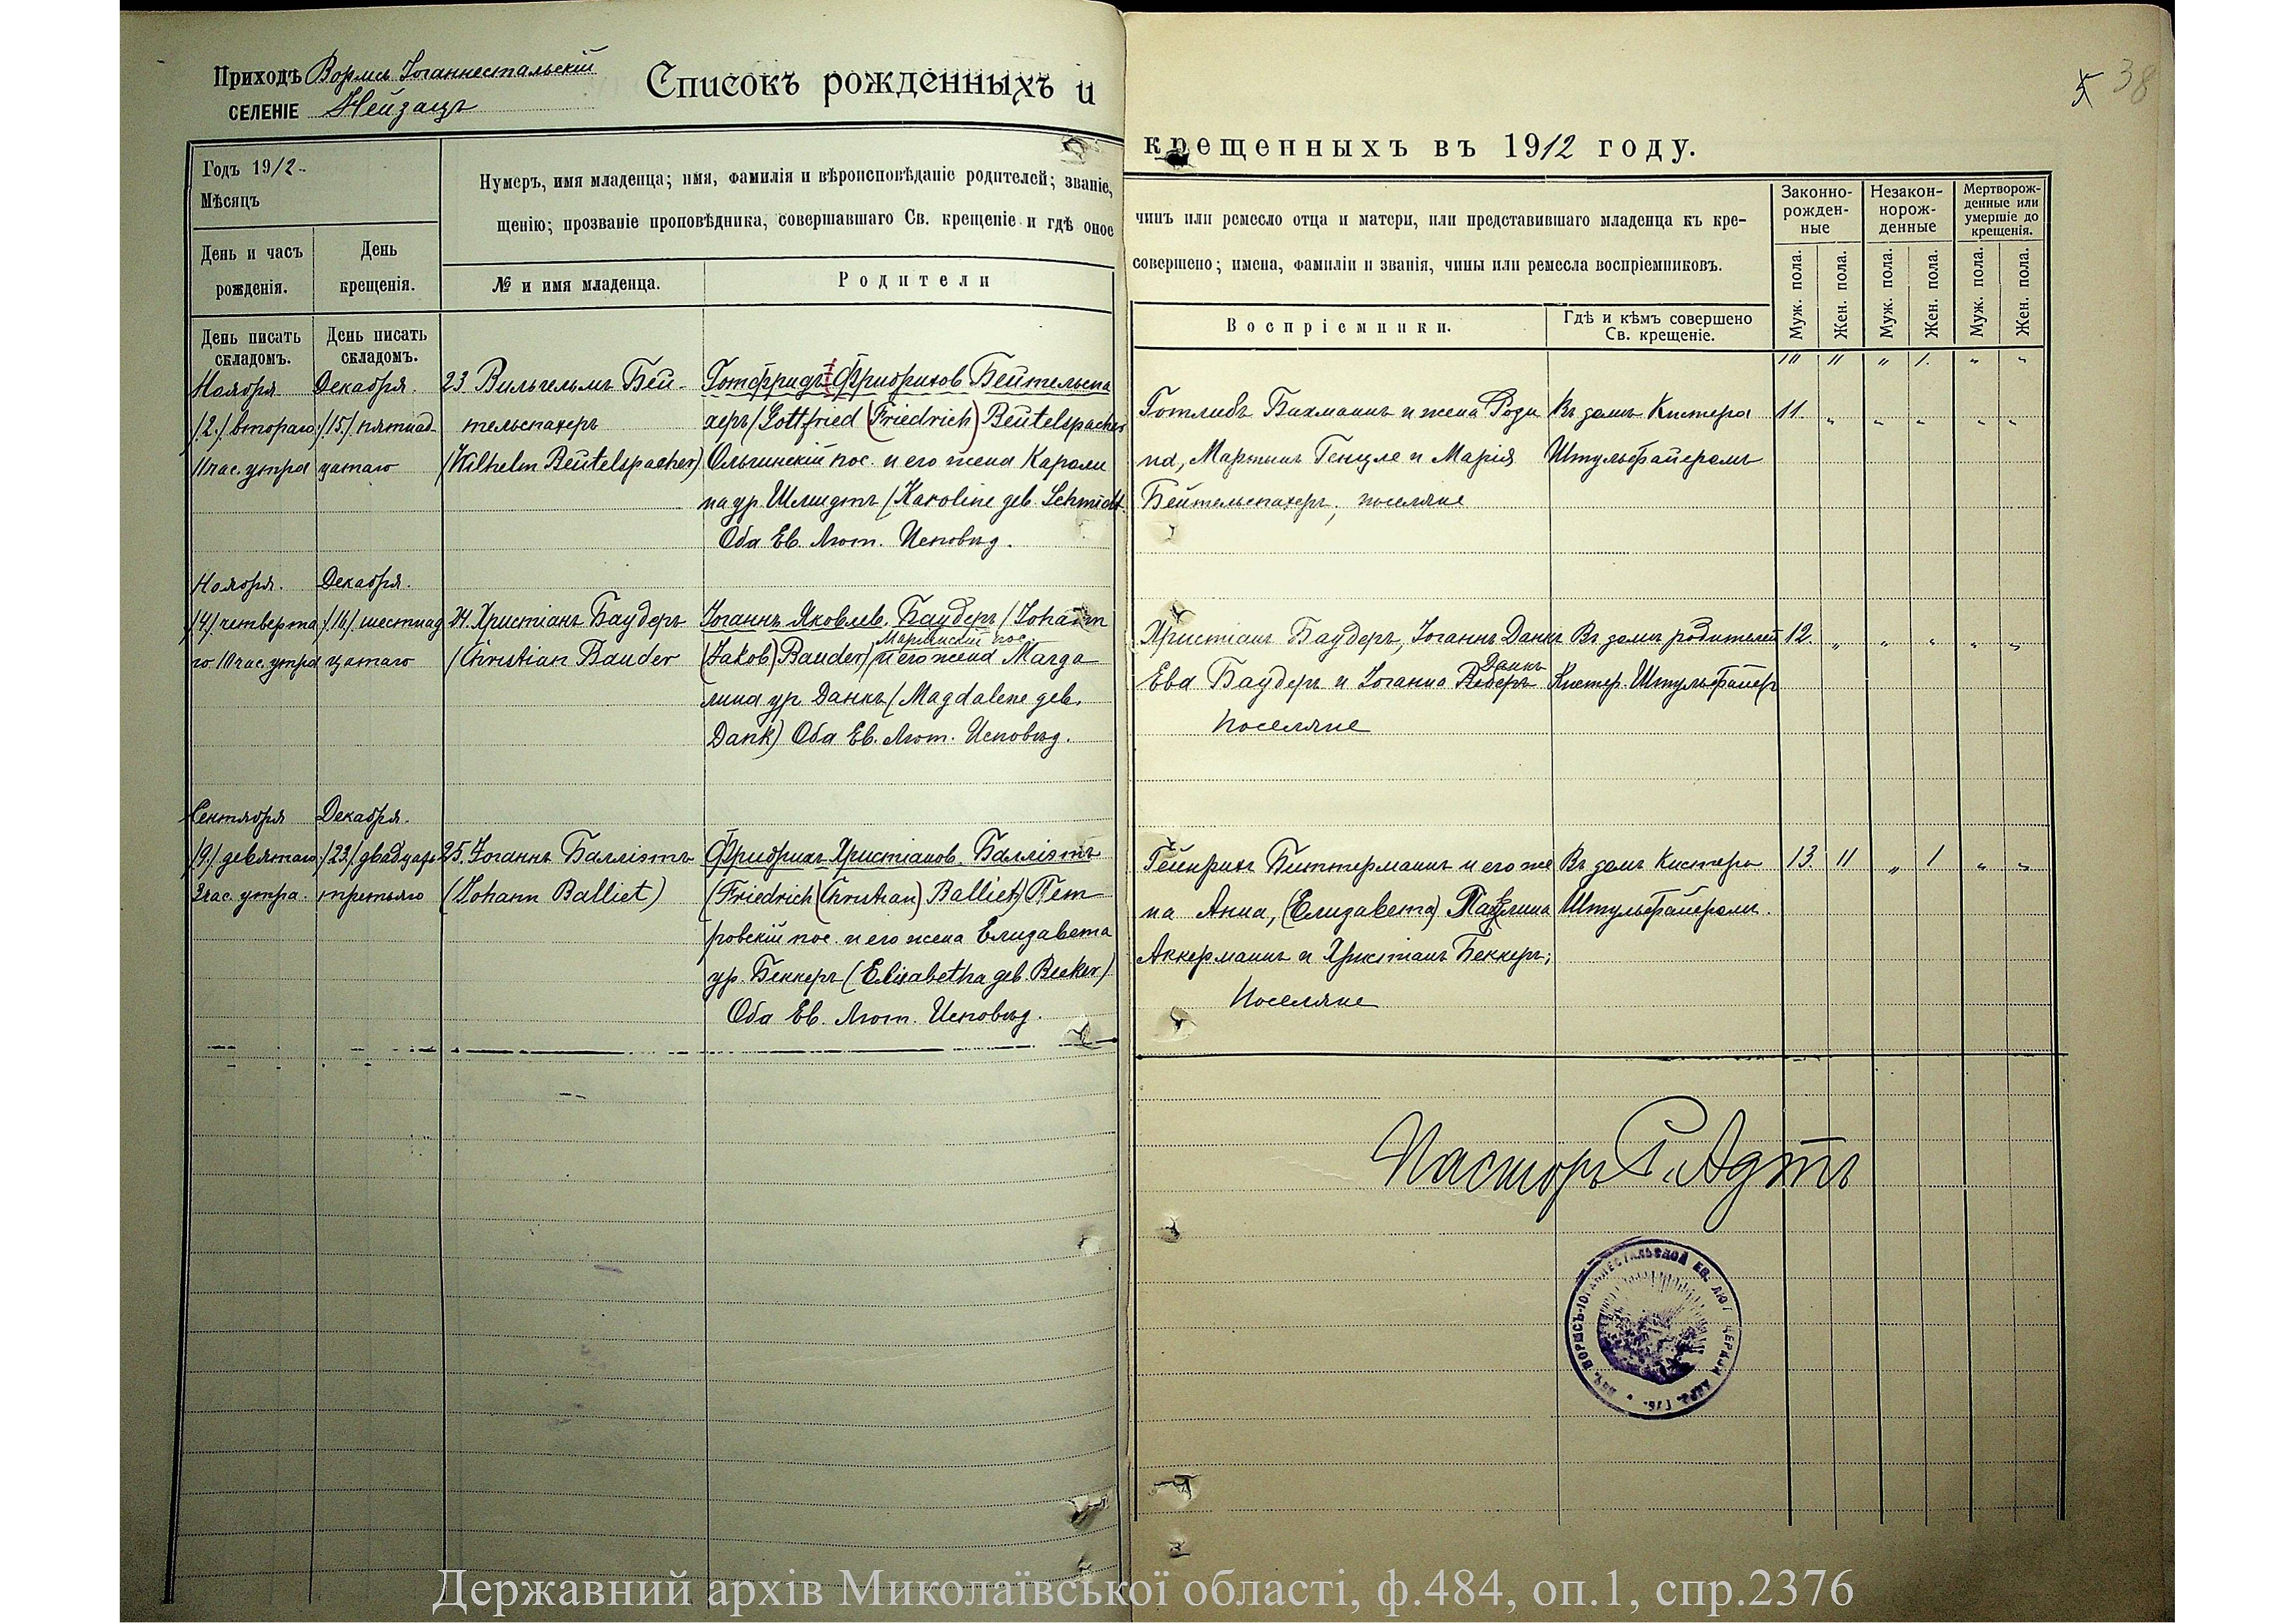 Приходъ Вормсъ Іоганнестальскій
СЕЛЕНІЕ Нейзацъ
Списокъ рожденныхъ и
Годъ 1912.
Мѣсяцъ
Нумеръ, имя младенца; имя, фамилія и вѣроисповѣданіе родителей; званіе,
щенію; прозваніе проповѣдника, совершавшаго Св. крещеніе и гдѣ оное
День и часъ рожденія.
День крещенія.
№ и имя младенца.
Родители
День писать складомъ.
День писать складомъ.
Ноября Декабря. 23 Вильгельмъ Бей- Готфридъ Фридрихов Бейтельспа
/2./ второго /15/ пятнад- тельспахеръ херъ (Gottfried (Friedrich) Beutelspacher
11 час. утра цатаго (Wilhelm Beutelspacher) Ольгинскій пос. и его жена Кароли
на ур. Шмидтъ (Karoline geb. Schmidt.
Оба Ев. Лют. Исповѣд.
Ноября. Декабря.
/4/ четверта /16/ шестнад 24. Христіанъ Баудеръ Іоганнъ Яковлев. Баудеръ (Johann
Маріинскій пос.
го 10 час. утра цатаго (Christian Bauder (Jakob) Bauder) и его жена Магда
лина ур Данкъ (Magdalene geb.
Dank) Оба Ев. Лют. Исповѣд.
Сентября Декабря.
/9/ девятаго /23/ двадцать 25. Іоганнъ Балліэтъ Фридрихъ Христіанов. Балліэтъ
3 час. утра. третьяго (Johann Balliet) (Friedrich (Christian) Balliet) Пет
ровскій пос. и его жена Елизавета
ур. Беккеръ (Elisabetha geb. Becker)
Оба Ев. Лют. Исповѣд.
38
крещенныхъ въ 1912 году.
чинъ или ремесло отца и матери, или представившаго младенца къ кре-
совершено; имена, фамиліи и званія, чины или ремесла воспріемниковъ.
Законно-рожден-ные
Незакон-норож-денные
Мертворож-денные или умершіе до крещенія.
Воспріемники.
Гдѣ и кѣмъ совершено Св. крещеніе.
Муж. пола. Жен. пола. Муж. пола. Жен. пола. Муж. пола. Жен. пола.
10 11 " 1. " "
Готлибъ Бахманнъ и жена Роди Въ домѣ Кистера 11. " " " " "
на, Мартинъ Генцле и Марія Штульбфайеромъ
Бейтельспахеръ; поселяне
Христіанъ Баудеръ, Іоганнъ Данкъ Въ домѣ родителей 12. " " " " "
Данкъ
Ева Баудеръ и Іоганна Веберъ Кистер. Штульбфайер
поселяне
Гейнрихъ Биттерманнъ и его же Въ домѣ Кистера 13. 11 " 1 " "
на Анна, (Елизавета) Паулина Штульбфайером.
Аккерманнъ и Христіанъ Беккеръ;
Поселяне
Пасторъ Г. Адтъ
Державний архів Миколаївської області, ф.484, оп.1, спр.2376